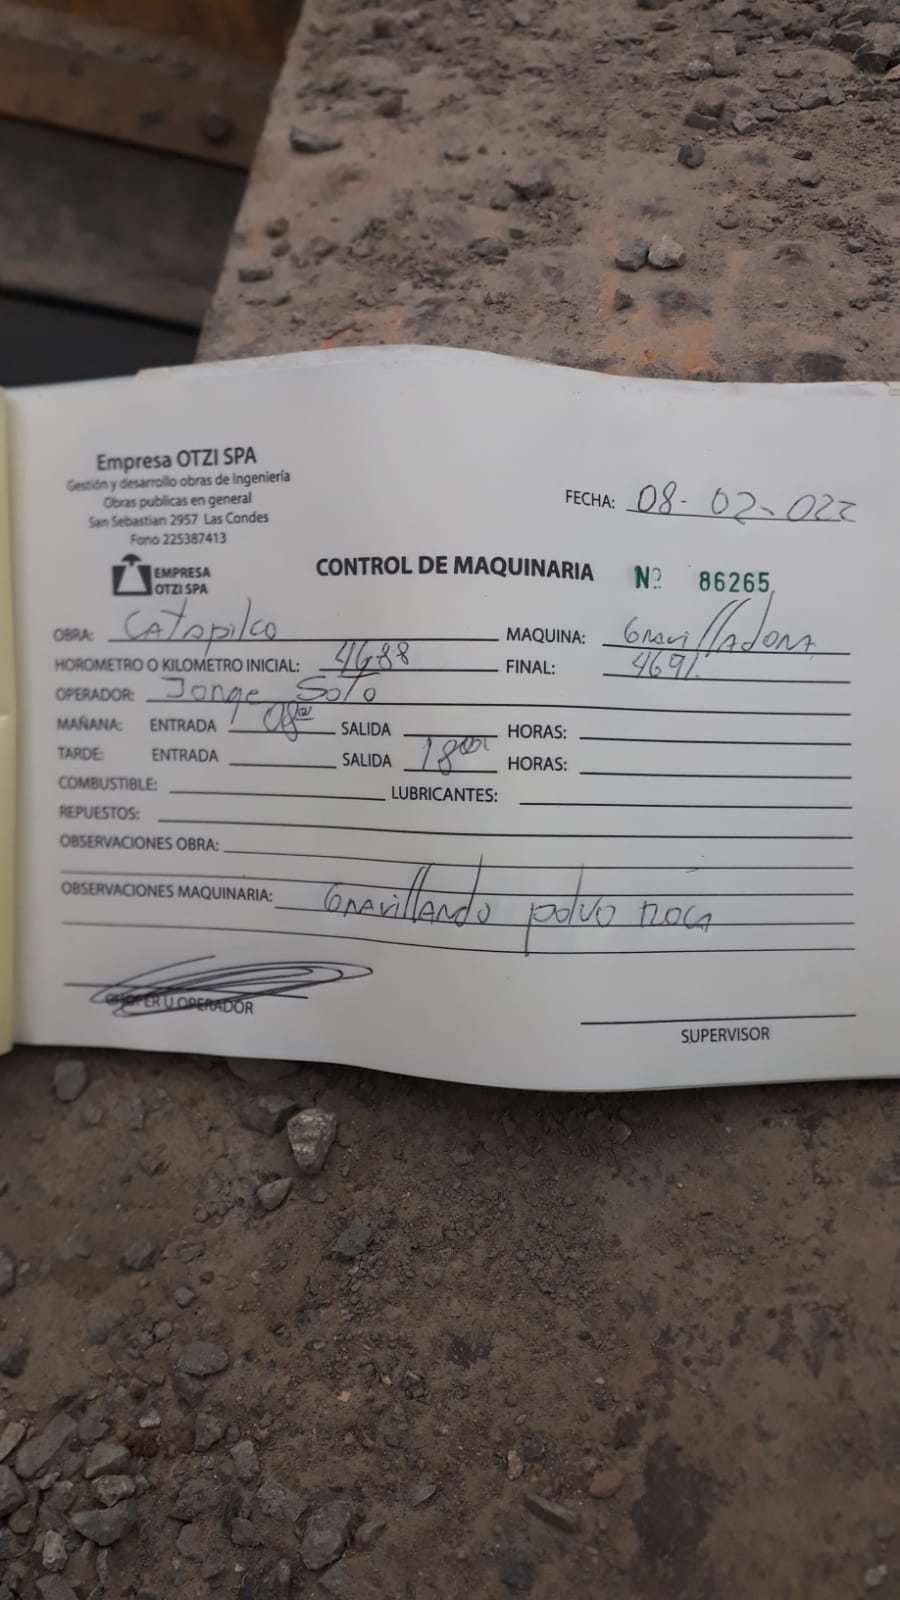 Empresa OTZI SPA
Gestión y desarrollo obras de Ingeniería
Obras publicas en general
San Sebastian 2957 Las Condes
Fono 225387413
FECHA: 08-02-022
EMPRESA
OTZI SPA
CONTROL DE MAQUINARIA Nº 86265
OBRA: Catapilco MAQUINA: Gravilladora
HOROMETRO O KILOMETRO INICIAL: 4688 FINAL: 4691.
OPERADOR: Jorge Soto
MAÑANA: ENTRADA 08⁰⁰ SALIDA HORAS:
TARDE: ENTRADA SALIDA 18⁰⁰ HORAS:
COMBUSTIBLE: LUBRICANTES:
REPUESTOS:
OBSERVACIONES OBRA:
OBSERVACIONES MAQUINARIA: Gravillando polvo roca
CHOFER U OPERADOR
SUPERVISOR